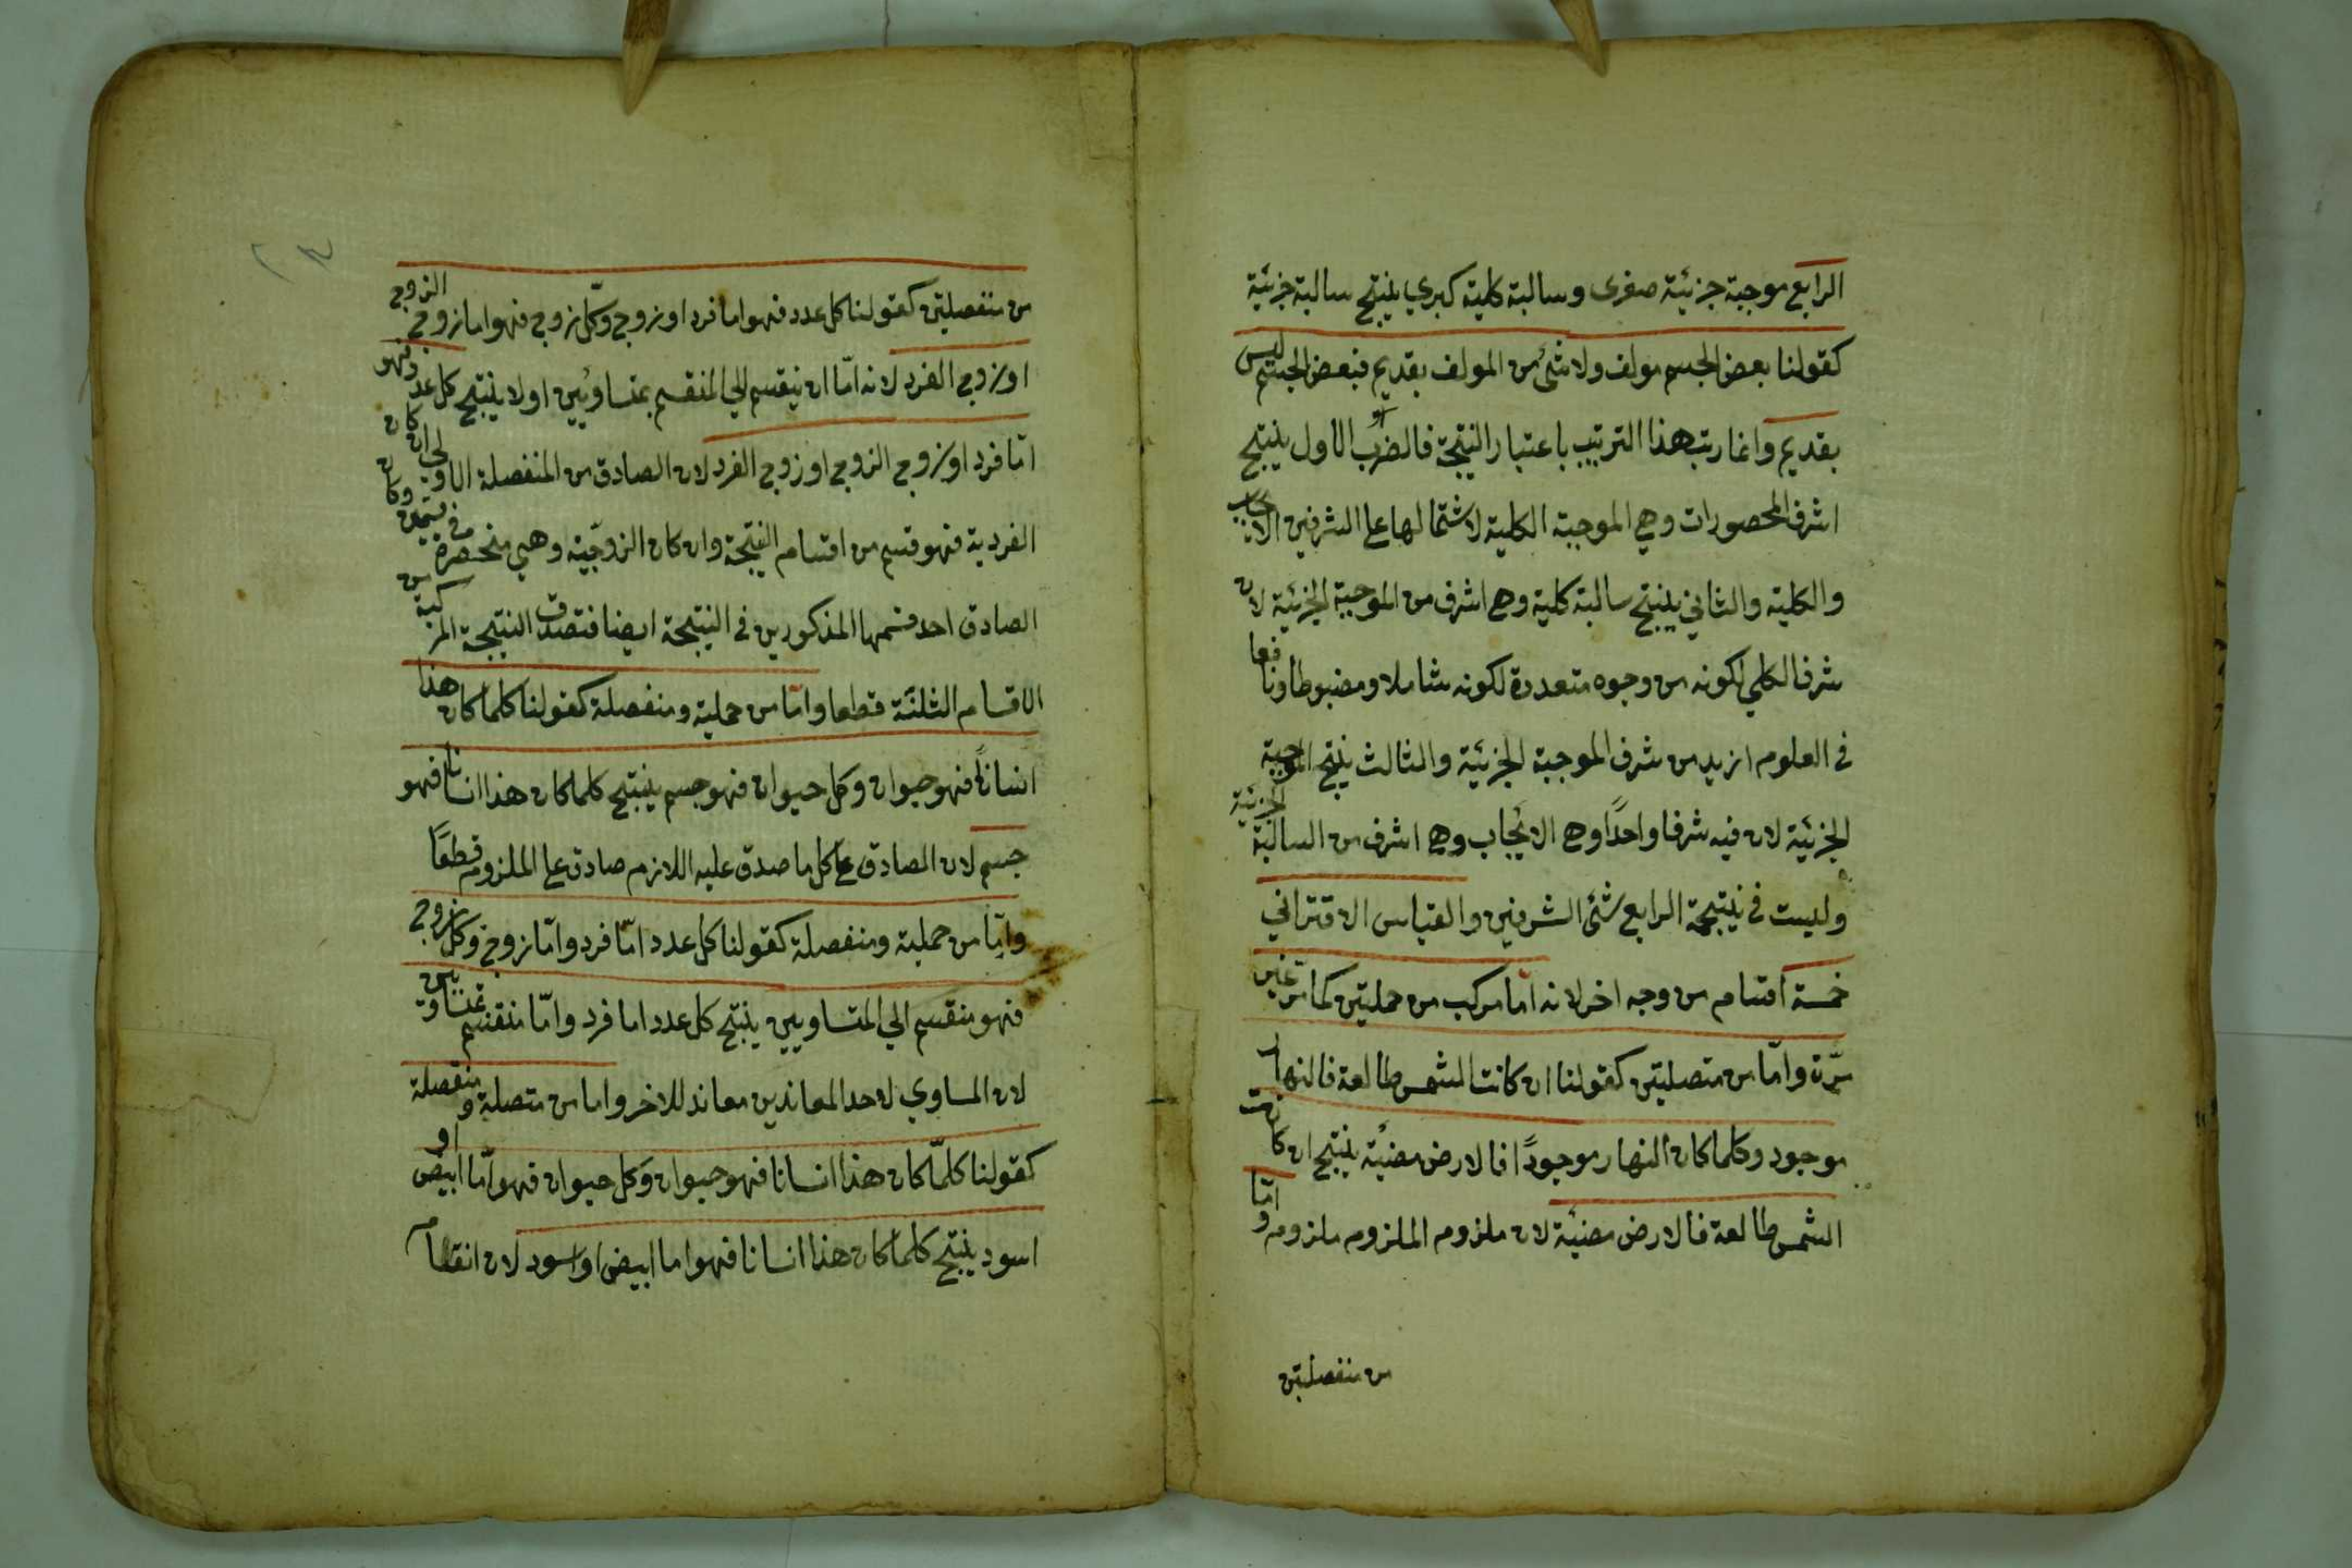 الرابع موجبة جزئية صغرى وسالبة كلية كبري ينتج سالبة جزئية
كقولنا بعض الجسم مولف ولا شئ من المولف بقديم فبعض الجسم ليس
بقديم وانما رتب هذا الترتيب باعتبار النتيجة فالضرب الاول ينتج
اشرف المحصورات وهي الموجبة الكلية لاشتمالها على الشرفين الايجاب
والكلية والثاني ينتج سالبة كلية وهي اشرف من الموجبة الجزئية لان
شرف الكلي لكونه من وجوه متعددة لكونه شاملا ومضبوطا ونافعا
في العلوم ازيد من شرف الموجبة الجزئية والثالث ينتج الموجبة
الجزئية لان فيه شرفا واحدًا وهي الايجاب وهي اشرف من السالبة الجزئية
وليست في نتيجة الرابع شئ الشرفين والقياس الاقتراني
خمسة اقسام من وجه اخر لانه امّا مركب من حمليتين كما مر غير
مرّة وامّا من متصليتين كقولنا ان كانت الشمس طالعة فالنهار
موجود وكلما كان النهار موجودًا فالارض مضيئة ينتج ان كانت
الشمس طالعة فالارض مضيئة لان ملزوم الملزوم ملزوم وامّا
من منفصلتين
٢٣
من منفصلتين كقولنا كل عدد فهو اما فرد او زوج وكلّ زوج فهو اما زوج الزوج
او زوج الفرد لانه امّا ان ينقسم الي المنقسم بمتساويين اولا ينتج كل عدد فهو
امّا فرد او زوج الزوج او زوج الفرد لان الصادق من المنفصلة الاولى ان كان
الفردية فهو قسم من اقسام النتيجة وان كان الزوجيّة وهي منحصرة في قسمين وكان
الصادق احد قسمها المذكورين في النتيجة ايضا فتصدق النتيجة المركبة من
الاقسام الثلثة قطعا وامّا من حملية ومنفصلة كقولنا كلما كان هذا
انسانًا فهو حيوان وكل حيوان فهو جسم ينتج كلما كان هذا انسانا فهو
جسم لان الصادق على كل ما صدق عليه اللازم صادق على الملزوم قطعًا
وامّا من حملية ومنفصلة كقولنا كل عدد امّا فرد وامّا زوج وكل زوج
فهو منقسم الي المتساويين ينتج كل عدد اما فرد وامّا منقسم بمتساويين
لان المساوي لاحد المعاندين معاند للاخر واما من متصلة ومنفصلة
كقولنا كلمّا كان هذا انسانا فهو حيوان وكل حيوان فهو امّا ابيض او
اسود ينتج كلما كان هذا انسانا فهو اما ابيض او اسود لان انقسام